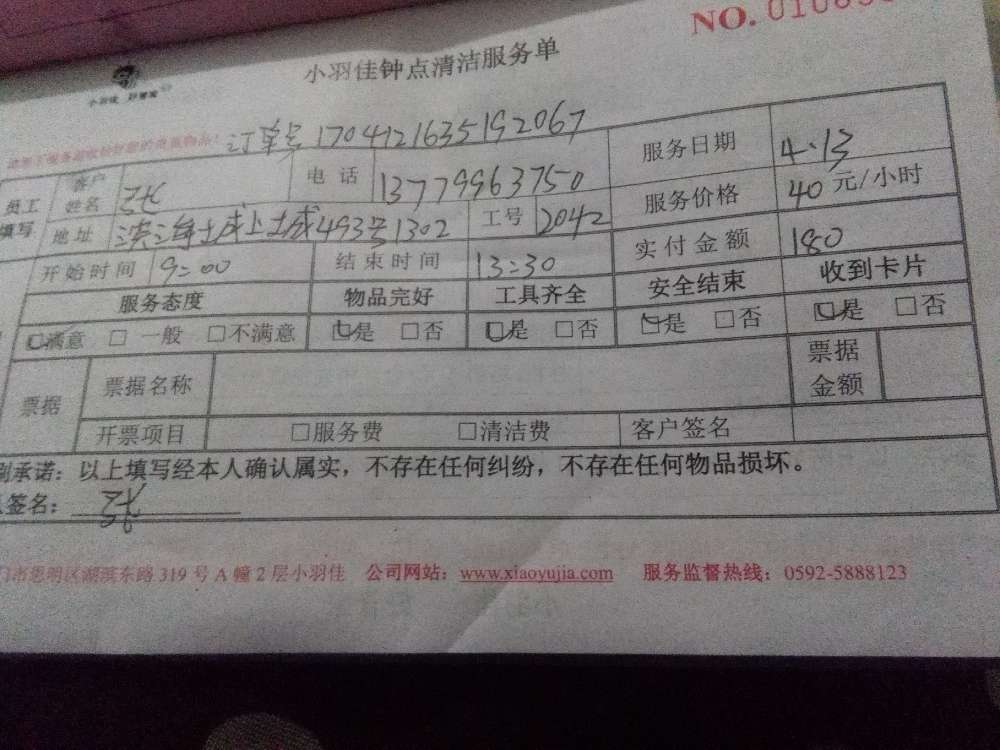 NO.
小羽佳钟点清洁服务单
小羽佳
订单号 1704121635192067
员工填写 客户姓名 电话 13779963750 服务日期 4.13
地址 493号1302 工号 2042 服务价格 40 元/小时
开始时间 9:00 结束时间 13:30 实付金额 180
服务态度 物品完好 工具齐全 安全结束 收到卡片
☑满意 □ 一般 □不满意 ☑是 □否 ☑是 □否 ☑是 □否 ☑是 □否
票据 票据名称 票据金额
开票项目 □服务费 □清洁费 客户签名
承诺：以上填写经本人确认属实，不存在任何纠纷，不存在任何物品损坏。
签名：
门市思明区湖滨东路 319 号 A 幢 2 层小羽佳 公司网站：www.xiaoyujia.com 服务监督热线：0592-5888123